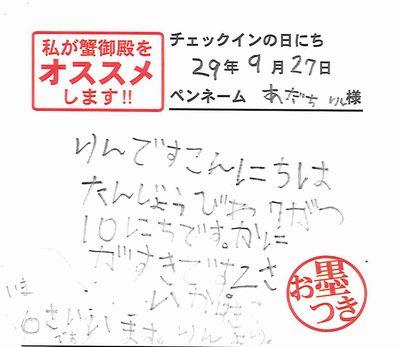 私が蟹御殿を
オススメ
します!!
チェックインの日にち
29年9月27日
ペンネーム あだち りん 様
りんですこんにちは
たんじょうびわ 7がつ
10にちです。かに
がすきです。2さ
い
いま
6さい
です
います。りん
お墨つき